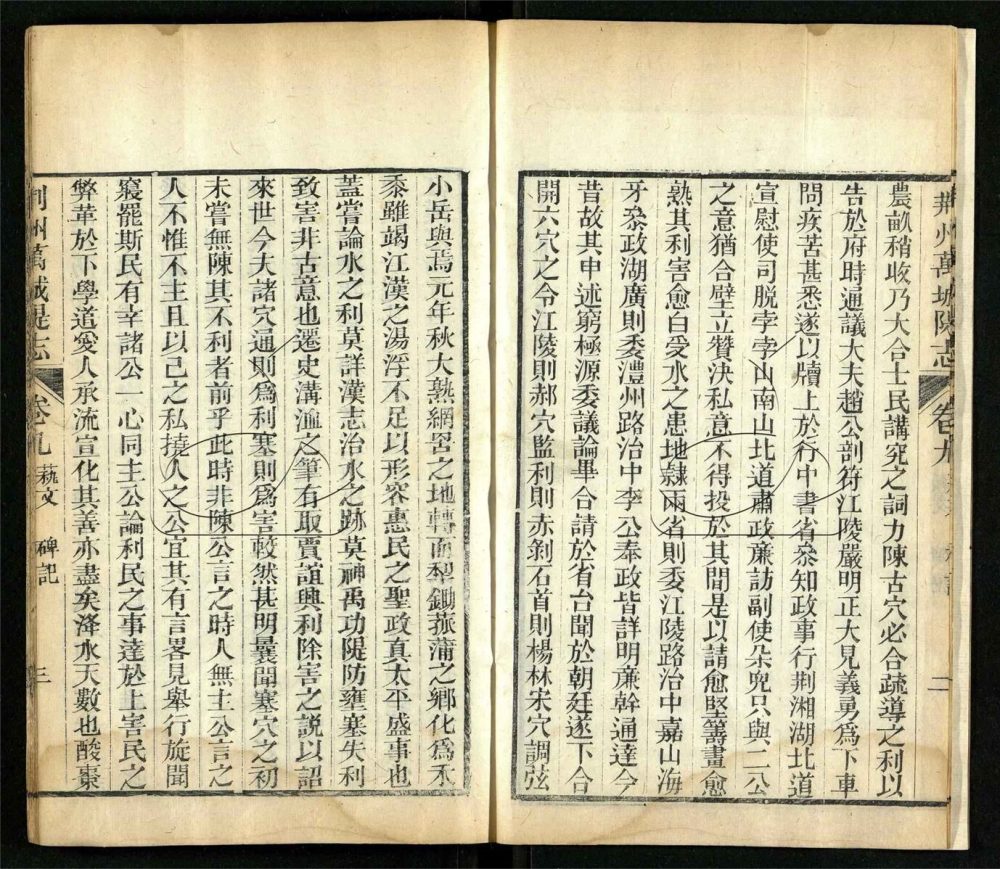 荊州萬城隄志 卷九 二
農畝稍收乃大合士民講究之詞力陳古穴必合疏導之利以
告於府時通議大夫趙公剖符江陵嚴明正大見義勇為下車
問疾苦甚悉遂以牘上於行中書省叅知政事行荆湘湖北道
宣慰使司脱孛孛山南山北道肅政廉訪副使朶兜只與二公
之意猶合壁立贊決私意不得投於其間是以請愈堅籌畫愈
熟其利害愈白受水之患地隸兩省則委江陵路治中嘉山海
牙叅政湖廣則委澧州路治中李公奉政皆詳明廉幹通達今
昔故其申述窮極源委議論畢合請於省台聞於朝廷遂下合
開六穴之令江陵則郝穴監利則赤剝石首則楊林宋穴調弦
小岳與焉元年秋大熟網罟之地轉而犁鋤菰蒲之鄉化為禾
黍雖竭江漢之湯浮不足以形容惠民之聖政真太平盛事也
蓋嘗論水之利莫詳漢志治水之跡莫神禹功隄防壅塞失利
致害非古意也遷史溝洫之筆有取賈誼興利除害之説以詔
來世今夫諸穴通則爲利塞則爲害較然甚明曩聞塞穴之初
未嘗無陳其不利者前乎此時非陳公言之時人無主公言之
人不惟不主且以己之私撓人之公宜其有言畧見舉行旋聞
寢罷斯民有幸諸公一心同主公論利民之事達於上害民之
弊革於下學道愛人承流宣化其善亦盡矣洚水天數也酸棗
荊州萬城隄志 卷九 蓺文 碑記 三